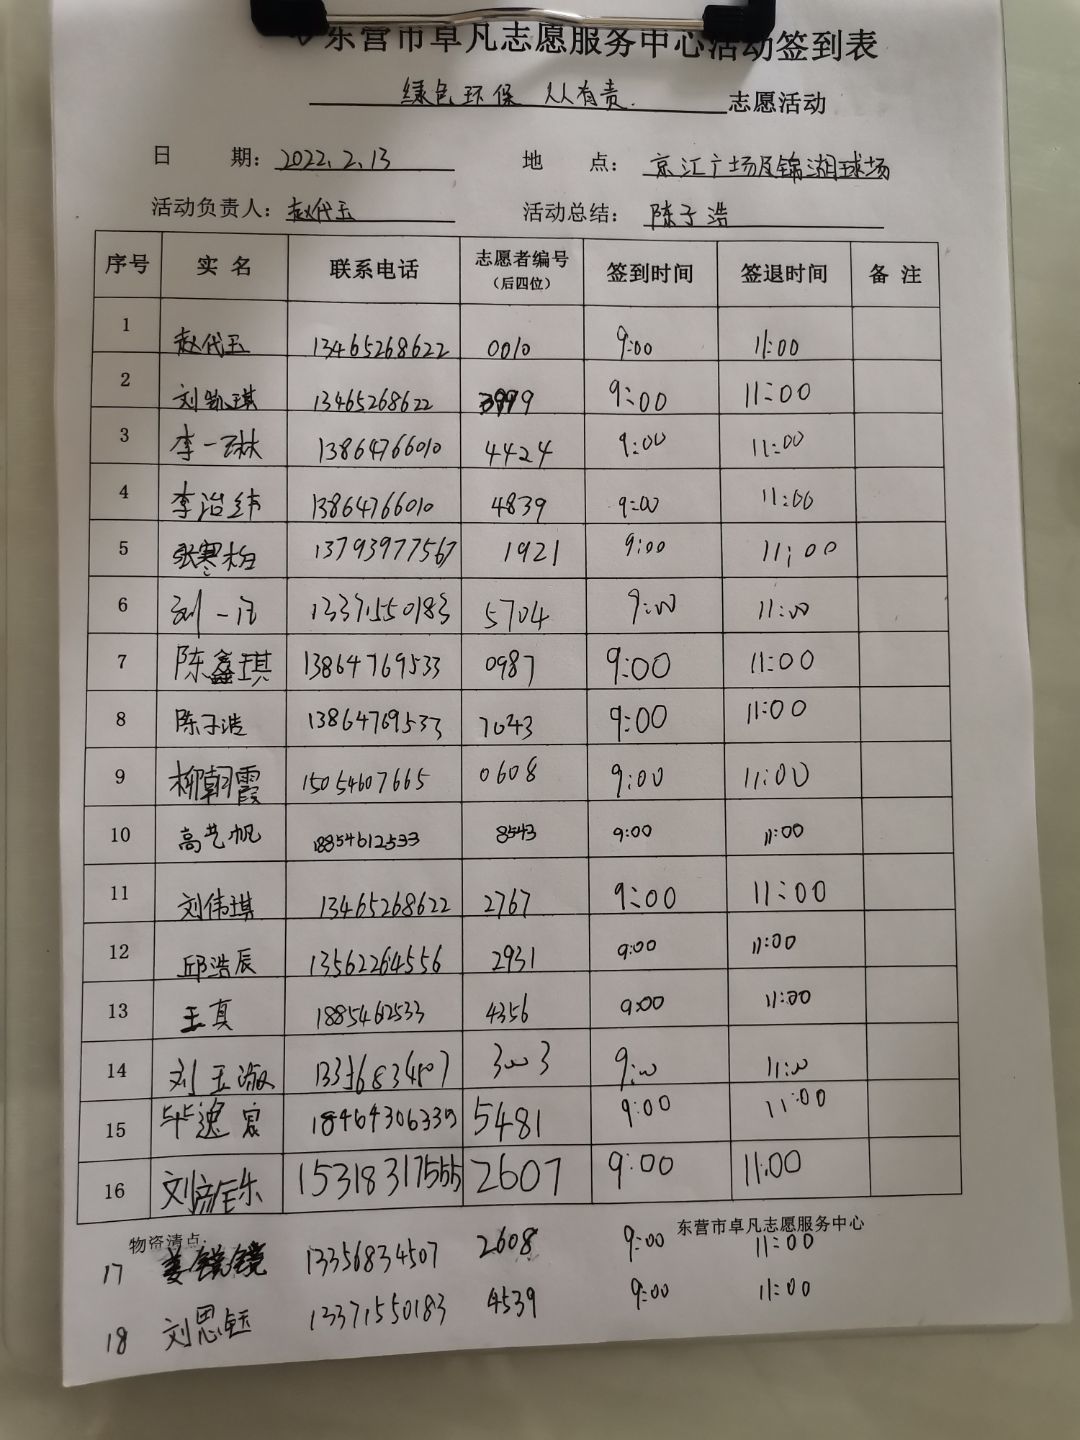 东营市卓凡志愿服务中心活动签到表
绿色环保 人人有责. 志愿活动
日 期: 2022.2.13 地 点: 京汇广场及锦湖球场
活动负责人: 赵代玉 活动总结: 陈子浩
序号 实名 联系电话 志愿者编号(后四位) 签到时间 签退时间 备注
1 赵代玉 13465268622 0010 9:00 11:00
2 刘凯琪 13465268622 3999 9:00 11:00
3 李一琳 13864766010 4424 9:00 11:00
4 李治纬 13864766010 4839 9:00 11:00
5 张寒 13793977567 1921 9:00 11:00
6 刘一 13371550183 5704 9:00 11:00
7 陈鑫琪 13864769533 0987 9:00 11:00
8 陈子浩 13864769533 7043 9:00 11:00
9 柳朝霞 15054607665 0608 9:00 11:00
10 高艺帆 18854612533 8543 9:00 11:00
11 刘伟琪 13465268622 2767 9:00 11:00
12 邱浩辰 13562264556 2931 9:00 11:00
13 王真 1885462533 4356 9:00 11:00
14 刘玉淑 3003 9:00 11:00
15 毕逸宸 18464306339 5481 9:00 11:00
16 刘 乐 15318317555 2607 9:00 11:00
物资清点: 东营市卓凡志愿服务中心
17 姜镜镜 13356834507 2608 9:00 11:00
18 刘思钰 13371550183 4539 9:00 11:00